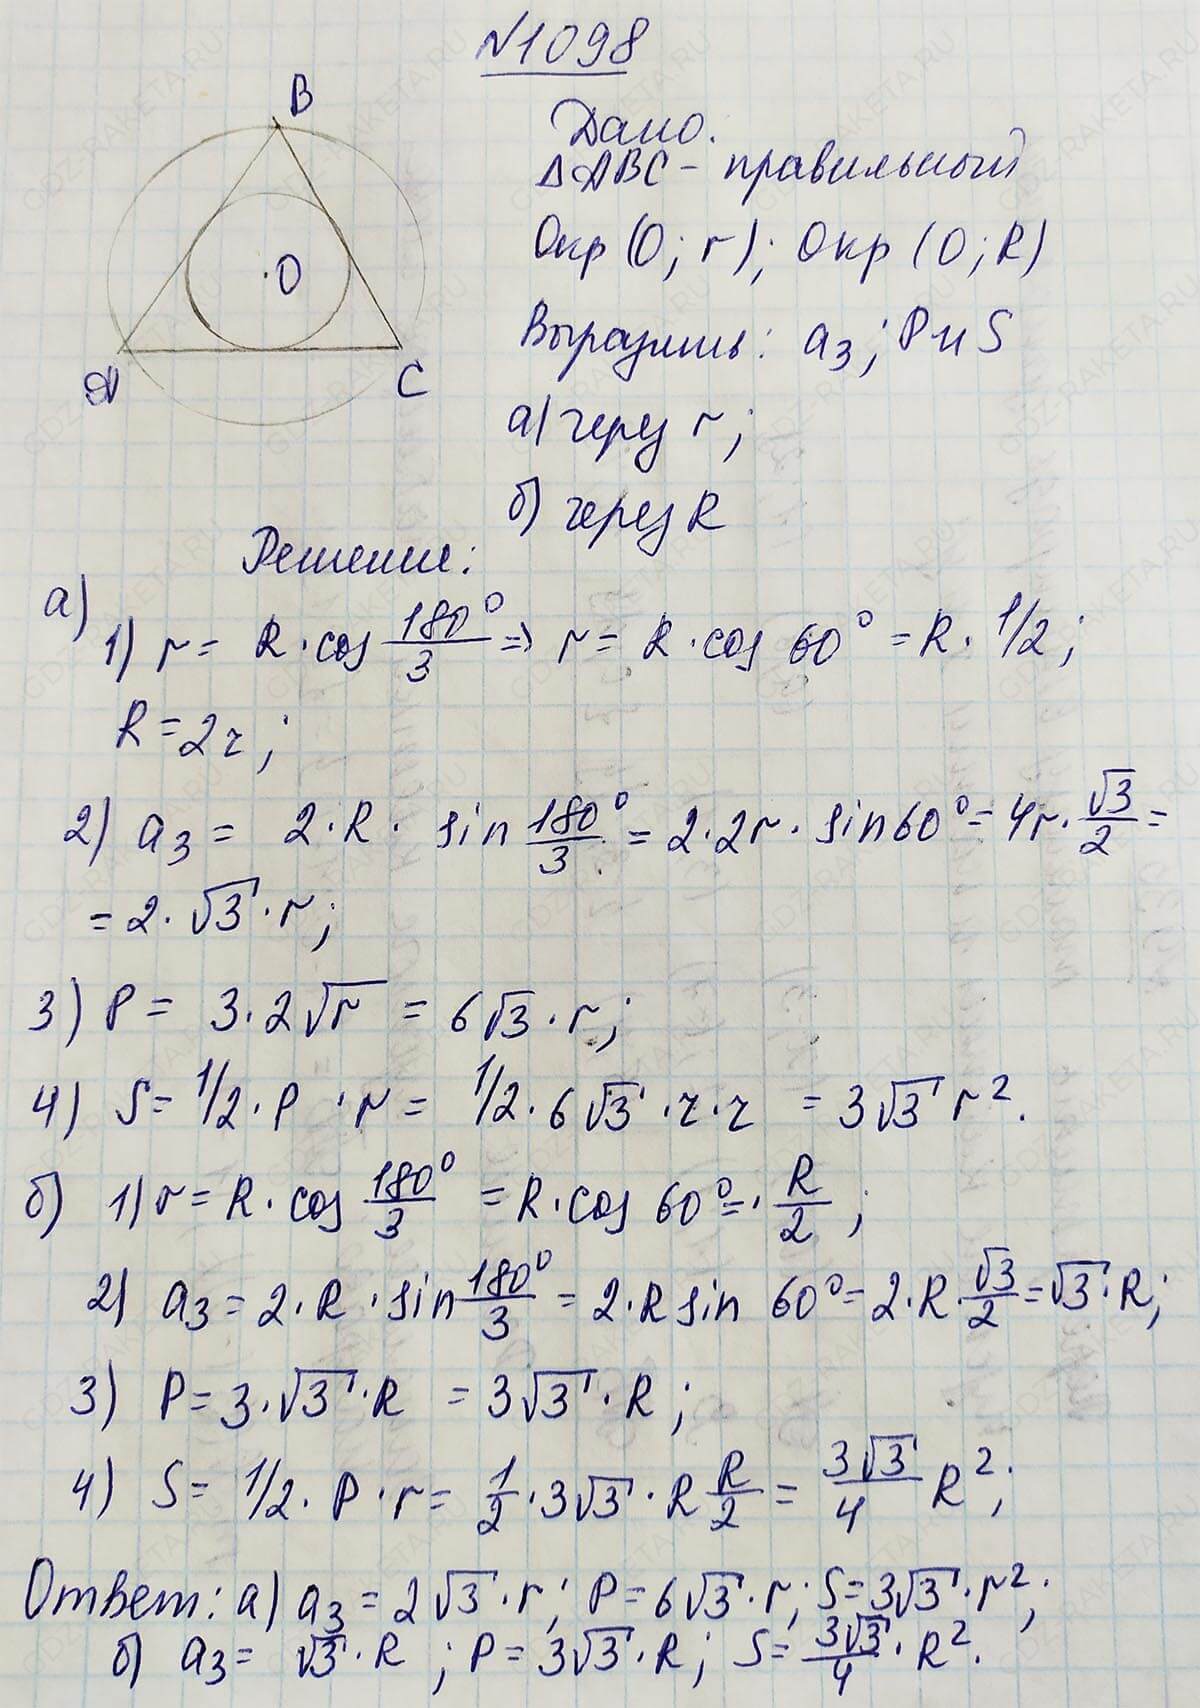 №1098
B
Дано.
ΔABC - правильный
Окр (O; r); Окр (O; R)
O
Выразить: a₃; P и S
A
C
а) через r;
б) через R
Решение:
а)
1) r = R · cos 180°/3 ⇒ r = R · cos 60° = R · 1/2;
R = 2r;
2) a₃ = 2 · R · sin 180°/3 = 2 · 2r · sin 60° = 4r · √3/2 =
= 2 · √3 · r;
3) P = 3 · 2√r = 6√3 · r;
4) S = 1/2 · P · r = 1/2 · 6√3 · r · r = 3√3 r².
б) 1) r = R · cos 180°/3 = R · cos 60° = · R/2;
2) a₃ = 2 · R · sin 180°/3 = 2 · R sin 60° = 2 · R · √3/2 = √3 · R;
3) P = 3 · √3 · R = 3√3 · R;
4) S = 1/2 · P · r = 1/2 · 3√3 · R R/2 = 3√3/4 R²;
Ответ: а) a₃ = 2√3 · r; P = 6√3 · r; S = 3√3 · r²;
б) a₃ = √3 · R; P = 3√3 · R; S = 3√3/4 · R².